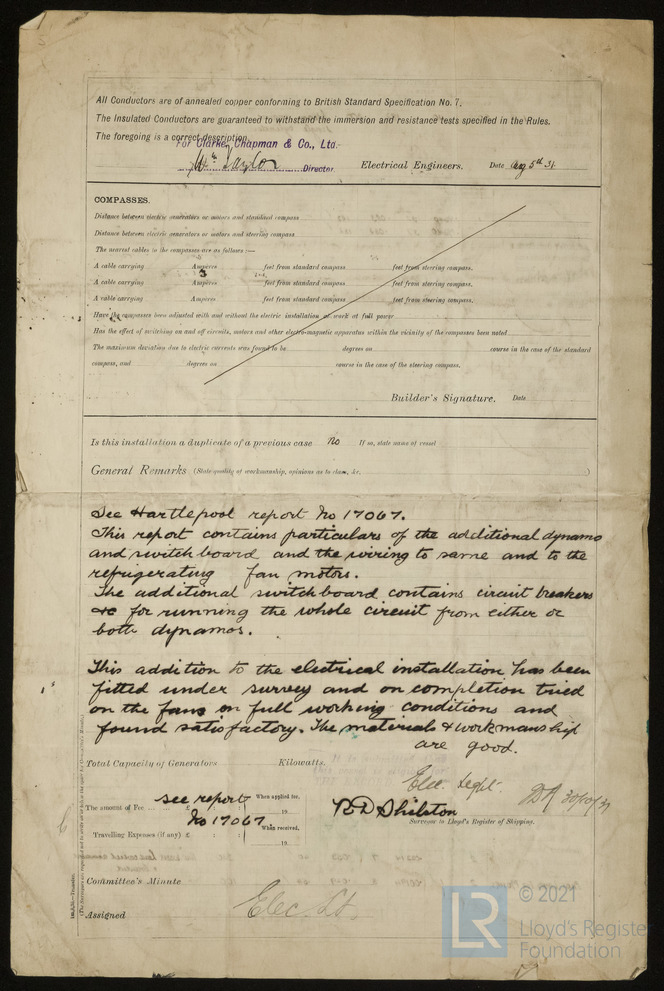 All Conductors are of annealed copper conforming to British Standard Specification No. 7.
The Insulated Conductors are guaranteed to withstand the immersion and resistance tests specified in the Rules.
The foregoing is a correct description.
For Clarke, Chapman & Co., Ltd.
Wm Taylor Director. Electrical Engineers. Date Aug 5th 31.
COMPASSES.
Distance between electric generators or motors and standard compass
Distance between electric generators or motors and steering compass
The nearest cables to the compasses are as follows:—
A cable carrying Ampères feet from standard compass feet from steering compass.
A cable carrying Ampères feet from standard compass feet from steering compass.
A cable carrying Ampères feet from standard compass feet from steering compass.
Have the compasses been adjusted with and without the electric installation at work at full power
Has the effect of switching on and off circuits, motors and other electro-magnetic apparatus within the vicinity of the compasses been noted
The maximum deviation due to electric currents was found to be degrees on course in the case of the standard
compass, and degrees on course in the case of the steering compass.
Builder's Signature. Date
Is this installation a duplicate of a previous case no If so, state name of vessel
General Remarks (State quality of workmanship, opinions as to class, &c. )
See Hartlepool report No 17067.
This report contains particulars of the additional dynamo
and switchboard and the wiring to same and to the
refrigerating fan motors.
The additional switchboard contains circuit breakers
&c for running the whole circuit from either or
both dynamos.
This addition to the electrical installation has been
fitted under survey and on completion tried
on the fans on full working conditions and
found satisfactory. The materials & workmanship
are good.
Total Capacity of Generators Kilowatts.
Elec. Light.
30/10/31
The amount of Fee ... ... £ see report When applied for,
19
No 17067
R D Shilston
Surveyor to Lloyd's Register of Shipping.
Travelling Expenses (if any) £ : : When received,
19
Committee's Minute
Assigned Elec. Lt.
© 2021
LR
Lloyd's Register
Foundation